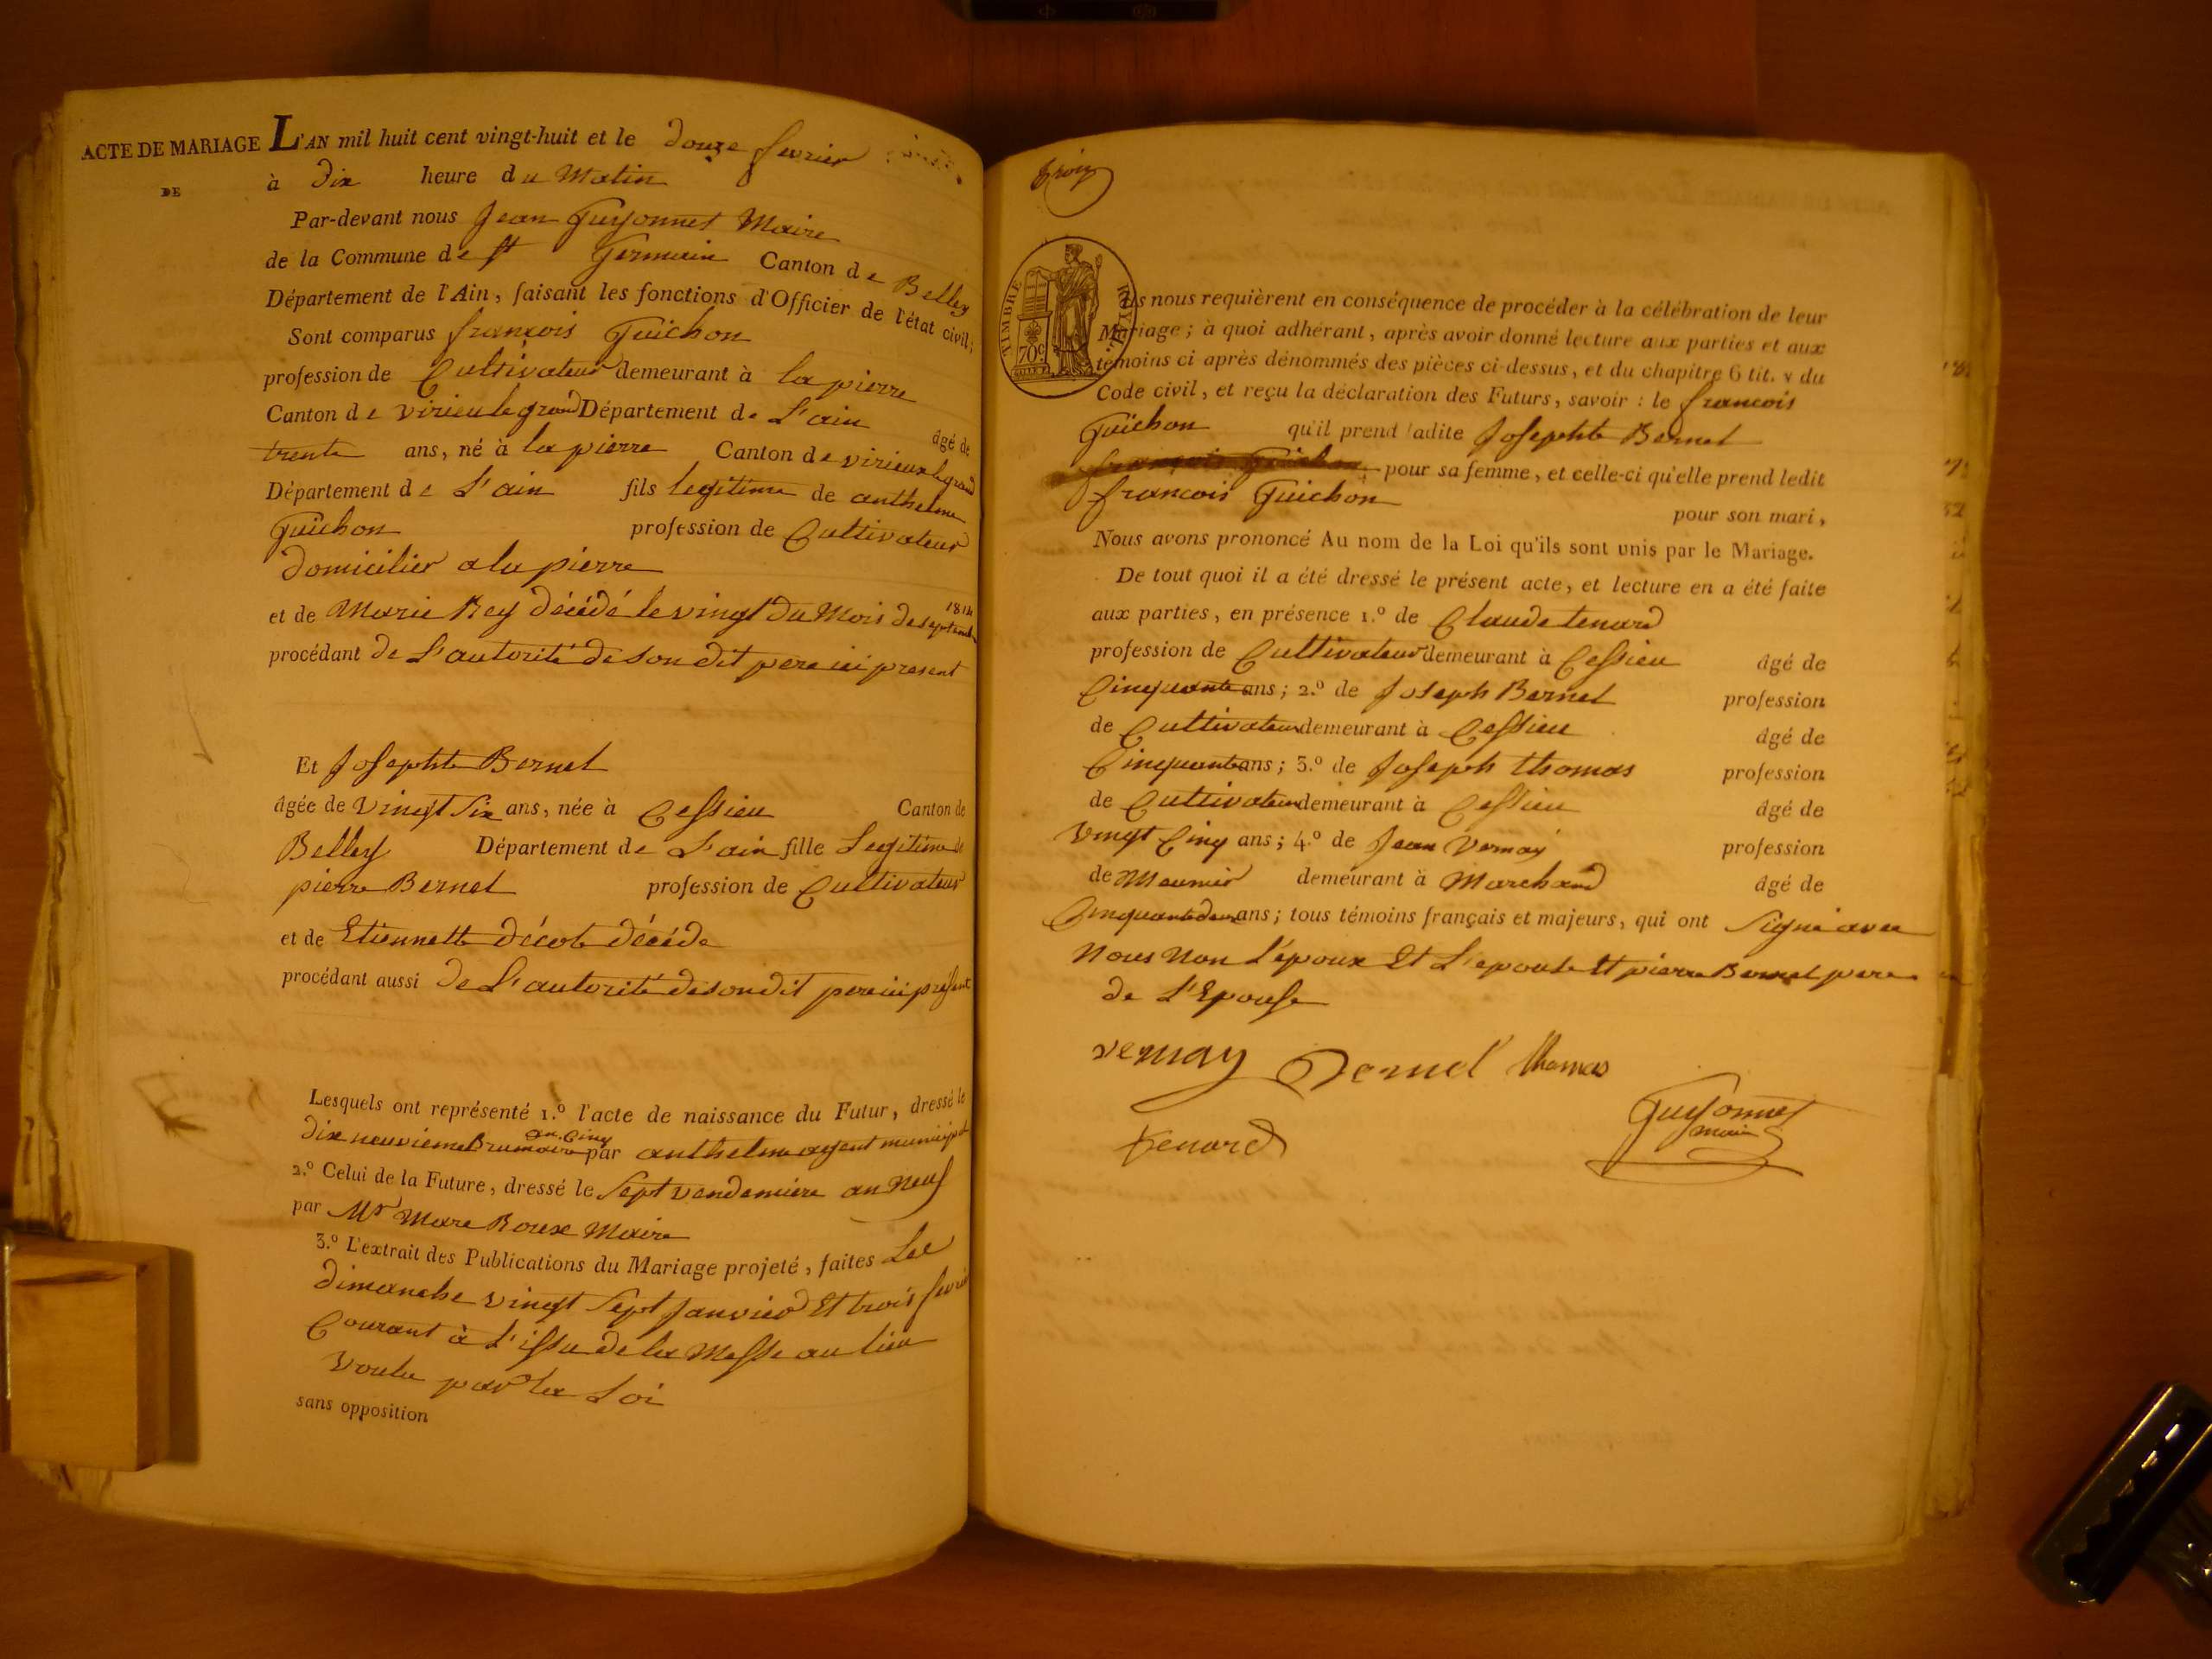 ACTE DE MARIAGE
DE
L'AN mil huit cent vingt-huit et le douze fevrier
à Dix heure du Matin
Par-devant nous Jean Guyonnet Maire
de la Commune de St Germain Canton de Belley
Département de l'Ain, faisant les fonctions d'Officier de l'état civil;
Sont comparus françois Guichon
profession de Cultivateur demeurant à la pierre
Canton de virieu le grand Département de L'ain âgé de
trente ans, né à la pierre Canton de virieux le grand
Département de L'ain fils legitime de anthelme
Guichon profession de Cultivateur
domicilier a la pierre
et de Marie Rey décédé le vingt du Mois de septembre 1814
procédant de L'autorité de son dit pere ici present
Et Josephte Bernet
âgée de vingt six ans, née à Cessieu Canton de
Belley Département de L'ain fille Legitime de
pierre Bernet profession de Cultivateur
et de Etiennette décote décéde
procédant aussi de L'autorité de son dit pere ici présent
Lesquels ont représenté 1.º l'acte de naissance du Futur, dressé le
dix neuvieme Brumaire an Cinq par anthelme agent municipal
2.º Celui de la Future, dressé le Sept vendemiere an Neuf
par Mr Marc Roux Maire
3.º L'extrait des Publications du Mariage projeté, faites Le
dimanche vingt Sept Janvier Et trois fevrier
Courant à L'issu de la Messe au lieu
voulu par la Loi
sans opposition
trois
TIMBRE ROYAL
70c
Ils nous requièrent en conséquence de procéder à la célébration de leur
Mariage; à quoi adhérant, après avoir donné lecture aux parties et aux
témoins ci après dénommés des pièces ci-dessus, et du chapitre 6 tit. v du
Code civil, et reçu la déclaration des Futurs, savoir : le francois
Guichon qu'il prend ladite Josephte Bernet
françois Guichon pour sa femme, et celle-ci qu'elle prend ledit
francois Guichon
pour son mari,
Nous avons prononcé Au nom de la Loi qu'ils sont unis par le Mariage.
De tout quoi il a été dressé le présent acte, et lecture en a été faite
aux parties, en présence 1.º de Claude tenard
profession de Cultivateur demeurant à Cessieu âgé de
Cinquante ans; 2.º de Joseph Bernet profession
de Cultivateur demeurant à Cessieu âgé de
Cinquante ans; 3.º de Joseph thomas profession
de Cultivateur demeurant à Cessieu âgé de
vingt Cinq ans; 4.º de Jean vernay profession
de Meunier demeurant à Marchand âgé de
Cinquante deux ans; tous témoins français et majeurs, qui ont Signé avec
Nous Non L'époux Et L'epouse Et pierre Bernet pere
de L'Epouse
vernay Bernet thomas
tenard
Guyonnet
maire